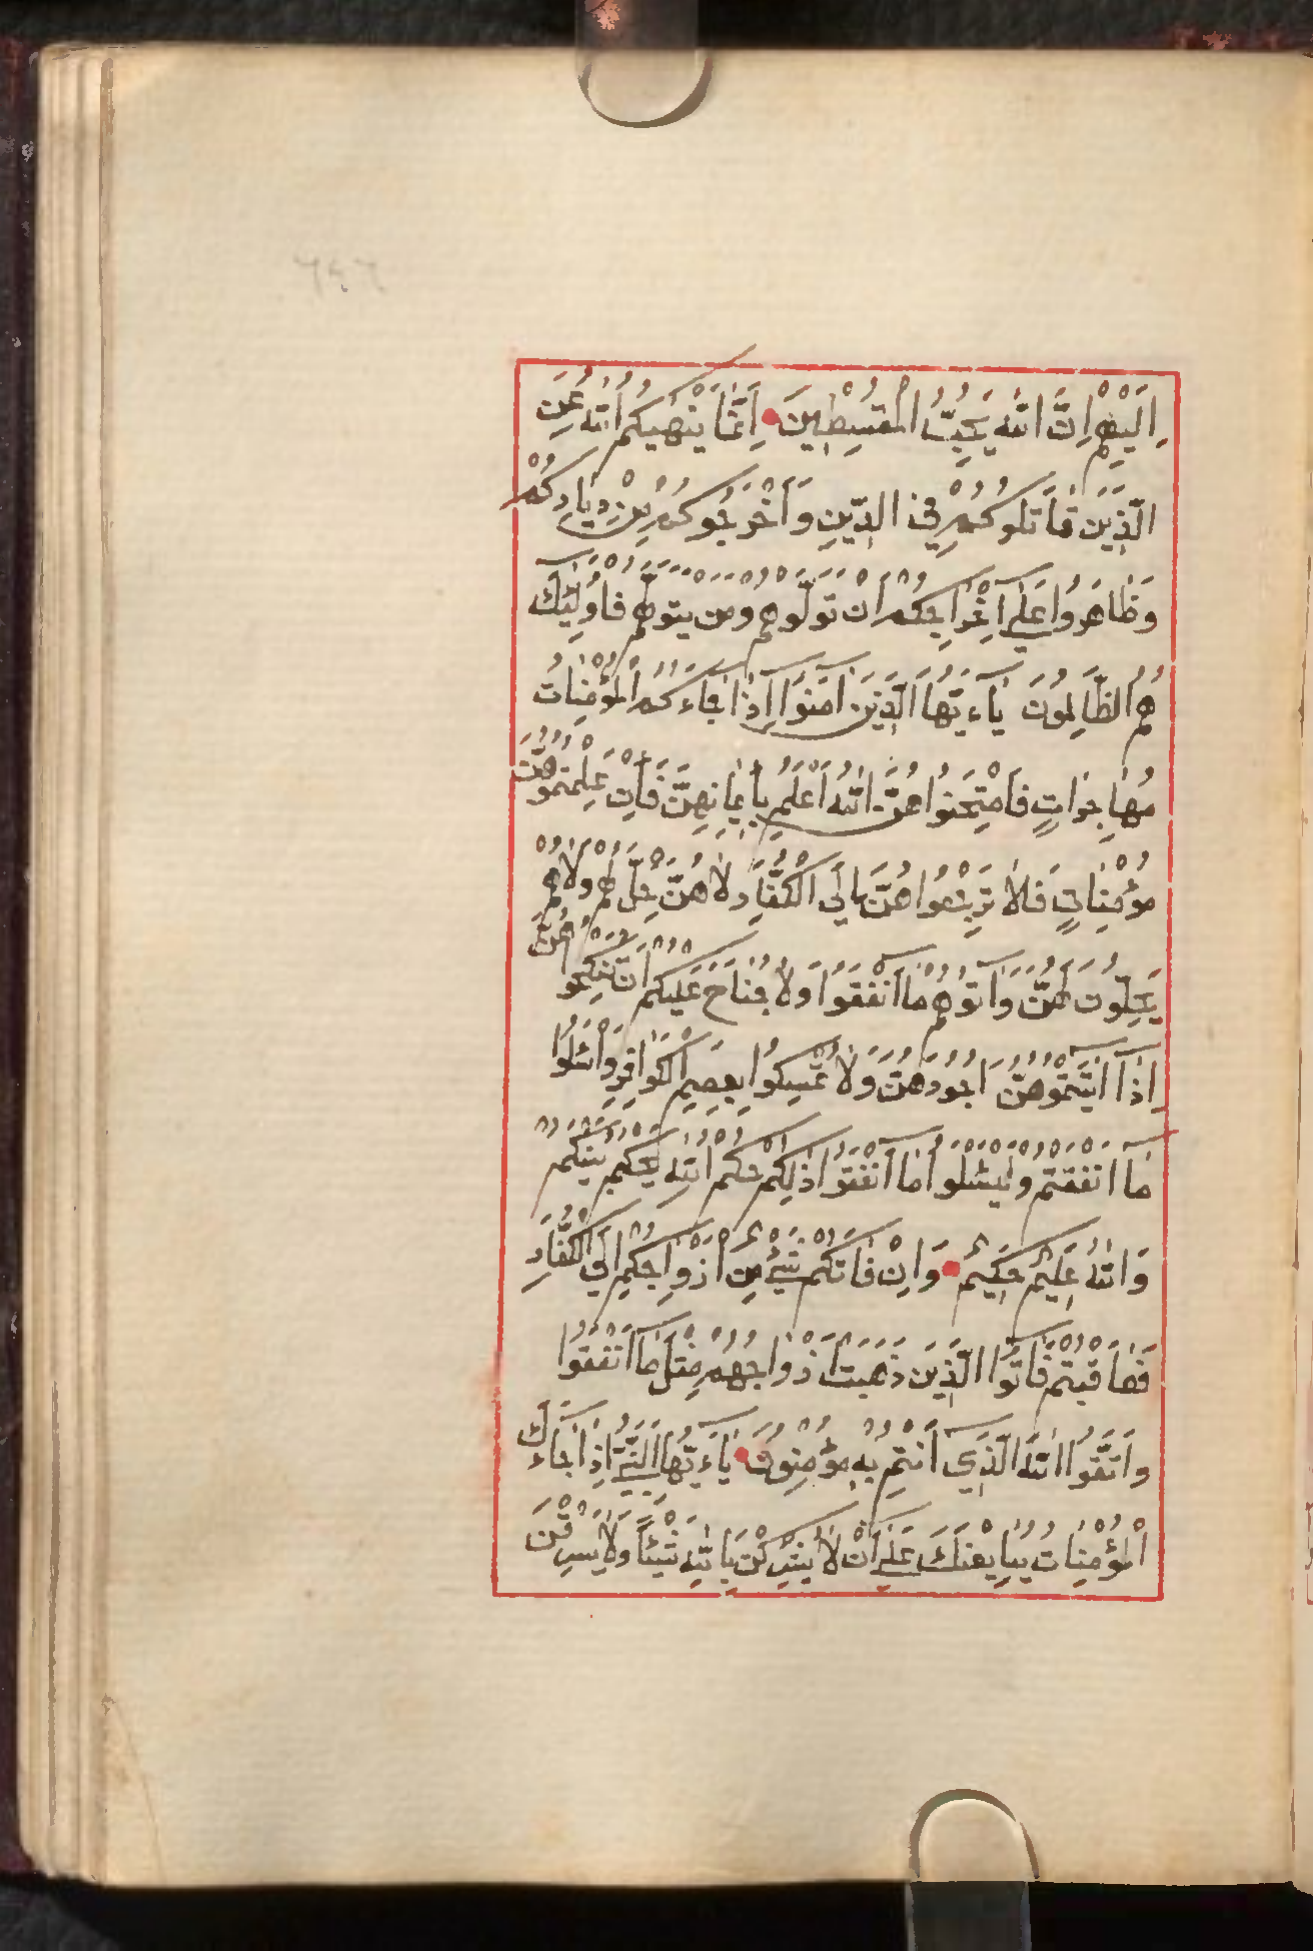 ٦٤٦
اِلَيْهِمْ اِنَّ اللّٰهَ يُحِبُّ الْمُقْسِطِينَ اِنَّمَا يَنْهٰيكُمُ اللّٰهُ عَنِ
الَّذِينَ قَاتَلُوكُمْ فِي الدِّينِ وَاَخْرَجُوكُمْ مِنْ دِيَارِكُمْ
وَظَاهَرُوا عَلٰى اِخْرَاجِكُمْ اَنْ تَوَلَّوْهُمْ وَمَنْ يَتَوَلَّهُمْ فَاُولٰئِكَ
هُمُ الظَّالِمُونَ يَاءَيُّهَا الَّذِينَ اٰمَنُوا اِذَا جَاءَكُمُ الْمُؤْمِنَاتُ
مُهَاجِرَاتٍ فَامْتَحِنُوهُنَّ اللّٰهُ اَعْلَمُ بِاِيمَانِهِنَّ فَاِنْ عَلِمْتُمُوهُنَّ
مُؤْمِنَاتٍ فَلَا تَرْجِعُوهُنَّ اِلَى الْكُفَّارِ لَا هُنَّ حِلٌّ لَهُمْ وَلَا هُمْ
يَحِلُّونَ لَهُنَّ وَاٰتُوهُمْ مَا اَنْفَقُوا وَلَا جُنَاحَ عَلَيْكُمْ اَنْ تَنْكِحُوهُنَّ
اِذَا اٰتَيْتُمُوهُنَّ اُجُورَهُنَّ وَلَا تُمْسِكُوا بِعِصَمِ الْكَوَافِرِ وَاسْئَلُوا
مَا اَنْفَقْتُمْ وَلْيَسْئَلُوا مَا اَنْفَقُوا ذٰلِكُمْ حُكْمُ اللّٰهِ يَحْكُمُ بَيْنَكُمْ
وَاللّٰهُ عَلِيمٌ حَكِيمٌ وَاِنْ فَاتَكُمْ شَيْءٌ مِنْ اَزْوَاجِكُمْ اِلَى الْكُفَّارِ
فَعَاقَبْتُمْ فَاٰتُوا الَّذِينَ ذَهَبَتْ اَزْوَاجُهُمْ مِثْلَ مَا اَنْفَقُوا
وَاتَّقُوا اللّٰهَ الَّذِي اَنْتُمْ بِهِ مُؤْمِنُونَ يَاءَيُّهَا النَّبِيُّ اِذَا جَاءَكَ
الْمُؤْمِنَاتُ يُبَايِعْنَكَ عَلٰى اَنْ لَا يُشْرِكْنَ بِاللّٰهِ شَيْئًا وَلَا يَسْرِقْنَ